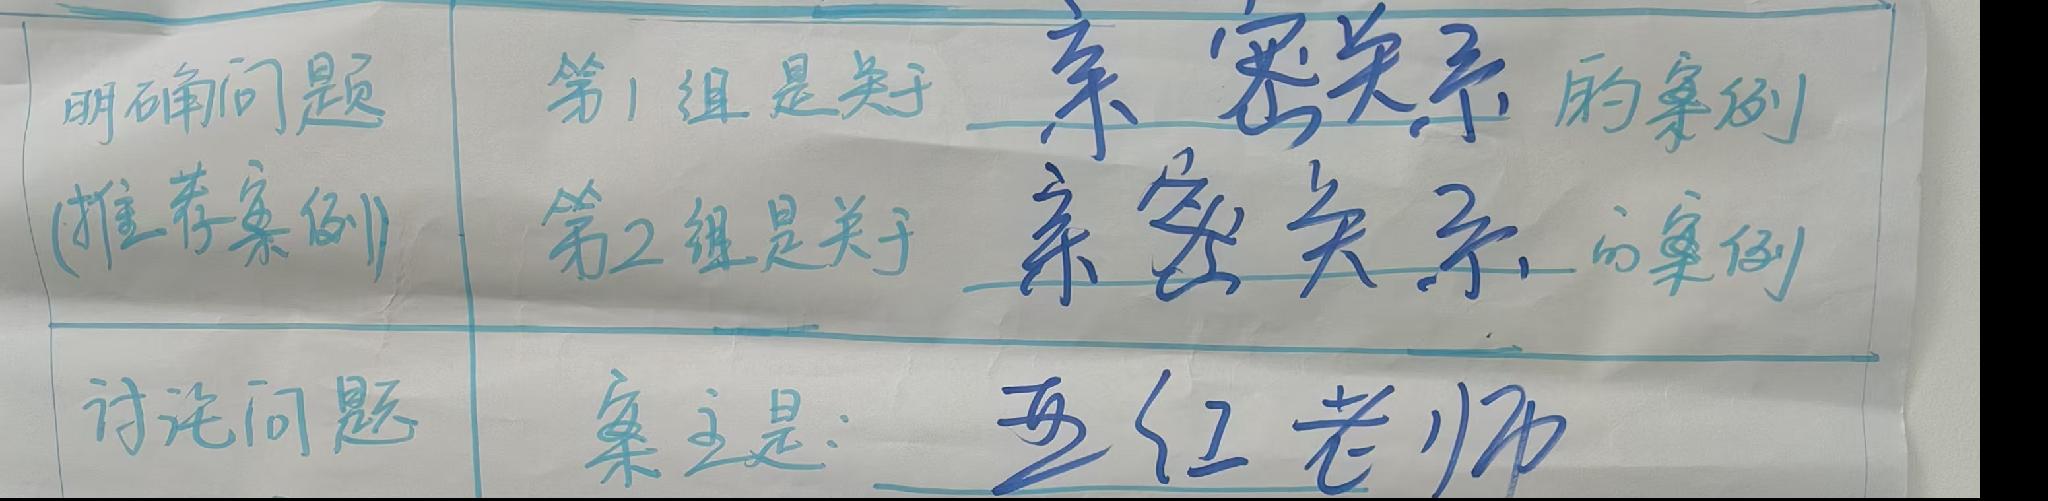 明确问题
(推荐案例)
第1组是关于 亲密关系 的案例
第2组是关于 亲密关系 的案例
讨论问题
案主是: 亚红老师